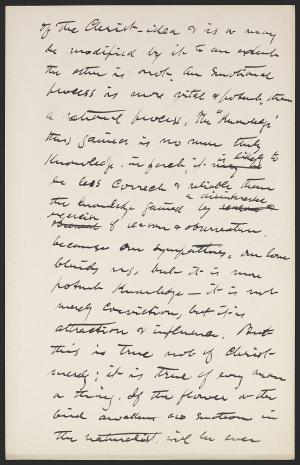 of the Christ-idea & is or may
be modified by it to an extent
the other is not. An emotional
process is more vital & potent, than
a rational process. The "Knowledge"
thus gained is no more truly
Knowledge, in fact, it is likely to
be less correct & reliable than
the knowledge gained by a disinterested
exercise of reason & observation.
because our sympathies, our love
blinds us, but it is more
potent knowledge — it is not
merely conviction, but it is
attraction & influence. But
this is true not of Christ
merely; it is true of every man
or thing. If the flower or the
bird awakens an emotion in
the naturalist, will he ever